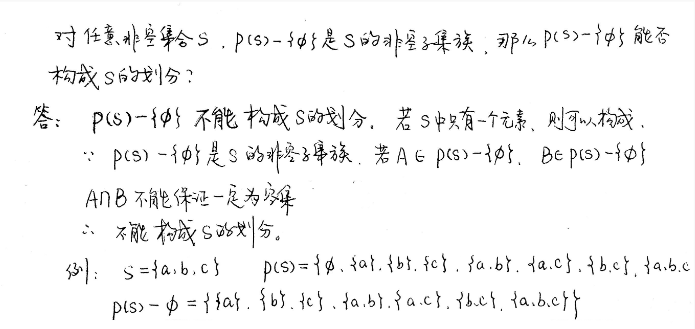 对任意非空集合S，P(S)-{ϕ}是S的非空子集族，那么P(S)-{ϕ}能否
构成S的划分？
答： P(S)-{ϕ} 不能构成S的划分。若S中只有一个元素，则可以构成．
∵ P(S)-{ϕ}是S的非空子集族．若A∈P(S)-{ϕ}，B∈P(S)-{ϕ}
A∩B 不能保证一定为空集
∴ 不能构成S的划分。
例： S={a,b,c} P(S)={ϕ、{a}、{b}、{c}、{a,b}、{a,c}、{b,c}、{a,b,c
P(S)-ϕ={{a}、{b}、{c}、{a,b}、{a,c}、{b,c}、{a,b,c}}